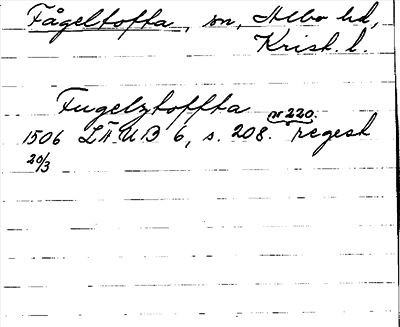 Fågeltofta, sn, Albo hd,
Krist. l.
Fugelztoffta
nr 220.
1506 LÄUB 6, s. 208. regest
20/3